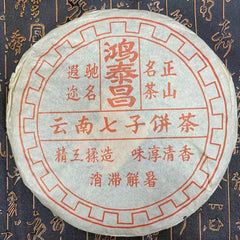 正山名茶
鴻泰昌
馳名遐途
云南七子饼茶
精工揉造 味淳清香
消滞解暑